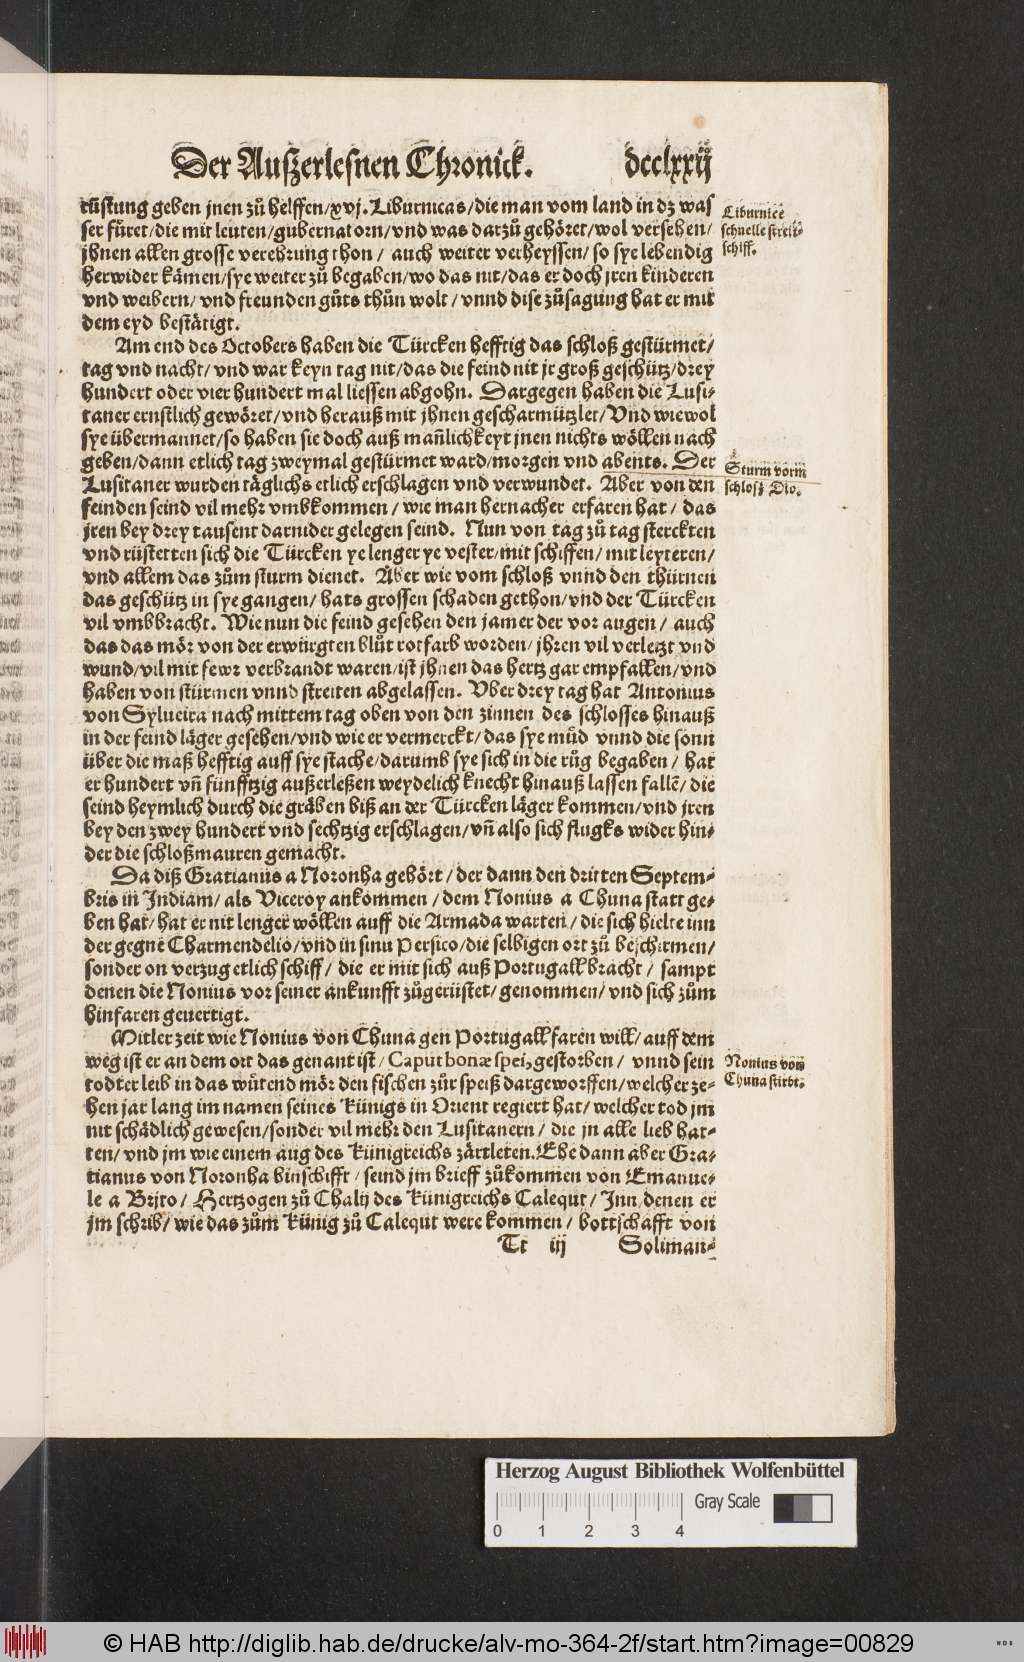 Der Außerlesnen Chronick. dcclxxij
rüstung geben jnen zů helffen/xvj. Liburnicas/die man vom land in dz was
ser füret/die mit leuten/gubernatorn/vnd was darzů gehöret/wol versehen/
jhnen allen grosse verehrung thon/ auch weiter verheyssen/ so sye lebendig
herwider kämen/sye weiter zů begaben/wo das nit/das er doch jren kinderen
vnd weibern/ vnd freunden gůts thůn wolt/vnnd dise zůsagung hat er mit
dem eyd bestätigt.
Liburnice
schnelle streit-
schiff.
Am end des Octobers haben die Türcken hefftig das schloß gestürmet/
tag vnd nacht/ vnd war keyn tag nit/das die feind nit jr groß geschütz/drey
hundert oder vier hundert mal liessen abgohn. Dargegen haben die Lusi-
taner ernstlich gewöret/vnd herauß mit jhnen gescharmützlet/Vnd wiewol
sye übermannet/so haben sie doch auß mañlichkeyt jnen nichts wöllen nach
geben/dann etlich tag zweymal gestürmet ward/morgen vnd abents. Der
Lusitaner wurden täglichs etlich erschlagen vnd verwundet. Aber von den
feinden seind vil mehr vmbkommen/ wie man hernacher erfaren hat/ das
jren bey drey tausent darnider gelegen seind. Nun von tag zů tag sterckten
vnd rüstetten sich die Türcken ye lenger ye vester/mit schiffen/ mit leyteren/
vnd allem das zům sturm dienet. Aber wie vom schloß vnnd den thürnen
das geschütz in sye gangen/ hats grossen schaden gethon/vnd der Türcken
vil vmbbracht. Wie nun die feind gesehen den jamer der vor augen/ auch
das das mör von der erwürgten blůt rotfarb worden/ jhren vil verletzt vnd
wund/vil mit fewr verbrandt waren/ist jhnen das hertz gar empfallen/vnd
haben von stürmen vnnd streiten abgelassen. Vber drey tag hat Antonius
von Sylueira nach mittem tag oben von den zinnen des schlosses hinauß
in der feind läger gesehen/vnd wie er vermerckt/das sye můd vnnd die sonn
über die maß hefftig auff sye stache/darumb sye sich in die růg begaben/ hat
er hundert vñ fünfftzig außerleßen weydelich knecht hinauß lassen fallē/ die
seind heymlich durch die gräben biß an der Türcken läger kommen/vnd jren
bey den zwey hundert vnd sechtzig erschlagen/vñ also sich flugks wider hin-
der die schloßmauren gemacht.
Sturm vorm
schloß Dio.
Da diß Gratianus a Noronha gehört/der dann den dritten Septem-
bris in Indiam/ als Viceroy ankommen/ dem Nonius a Chuna statt ge-
ben hat/hat er nit lenger wöllen auff die Armada warten/ die sich hielte inn
der gegne Charmendelio/vnd in sinu Persico/die selbigen ort zů beschirmen/
sonder on verzug etlich schiff/ die er mit sich auß Portugall bracht/ sampt
denen die Nonius vor seiner ankunfft zůgerüstet/genommen/vnd sich zům
hinfaren geuertigt.
Mitler zeit wie Nonius von Chuna gen Portugall faren will/auff dem
weg ist er an dem ort das genant ist/Caput bonæ spei, gestorben/ vnnd sein
todter leib in das wůtend mör den fischen zůr speiß dargeworffen/welcher ze-
hen jar lang im namen seines Künigs in Orient regiert hat/welcher tod jm
nit schädlich gewesen/sonder vil mehr den Lusitanern/ die jn alle lieb hat-
ten/ vnd jm wie einem aug des Künigreichs zärtleten. Ehe dann aber Gra-
tianus von Noronha hinschifft/seind jm brieff zůkommen von Emanue-
le a Brito/ Hertzogen zů Chalij des Künigreichs Calequt/ Inn denen er
jm schrib/wie das zům Künig zů Calequt were kommen/ bottschafft von
Nonius von
Chuna stirbt.
Tt iij Soliman-
Herzog August Bibliothek Wolfenbüttel
Gray Scale
0 1 2 3 4
© HAB http://diglib.hab.de/drucke/alv-mo-364-2f/start.htm?image=00829